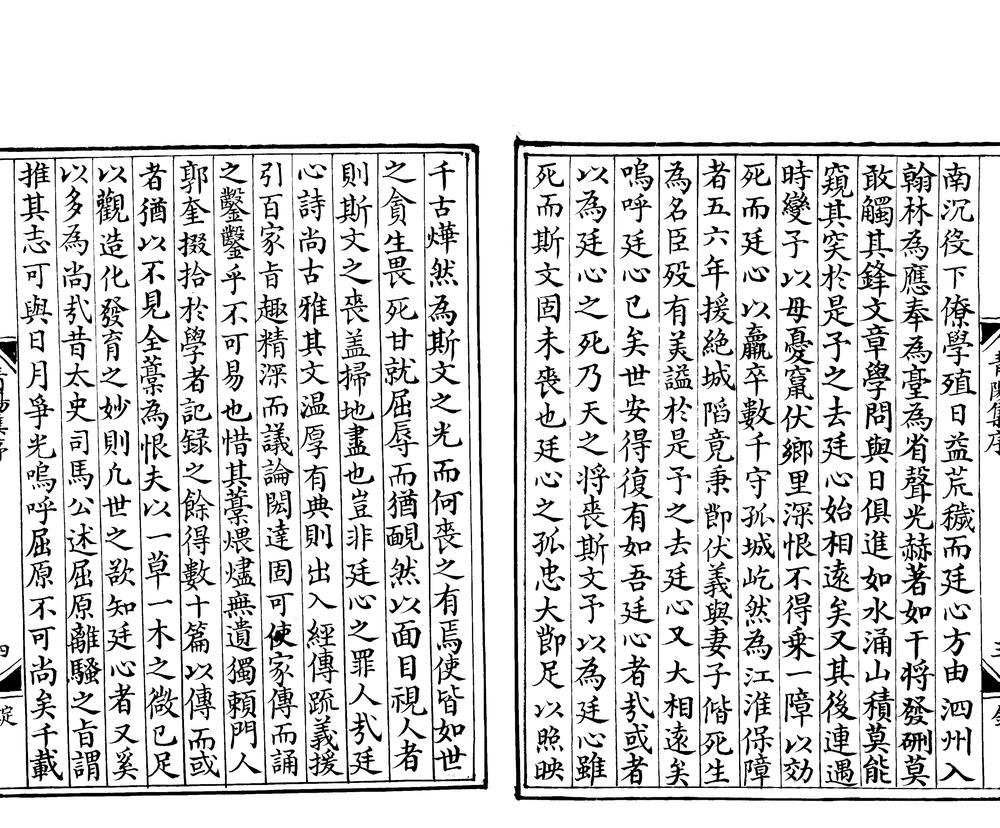 南沉役下僚學殖日益荒穢而廷心方由泗州入
翰林為應奉為臺為省聲光赫著如干將發硎莫
敢觸其鋒文章學問與日俱進如水涌山積莫能
窺其突於是子之去廷心始相遠矣又其後連遇
時變予以母憂竄伏鄉里深恨不得乘一障以効
死而廷心以羸卒數千守孤城屹然為江淮保障
者五六年援絕城䧟竟秉節伏義與妻子偕死生
為名臣歿有美謚於是予之去廷心又大相遠矣
嗚呼廷心已矣世安得復有如吾廷心者㢤或者
以為廷心之死乃天之將喪斯文予以為廷心雖
死而斯文固未喪也廷心之孤忠大節足以照映
千古燁然為斯文之光而何喪之有焉使皆如世
之貪生畏死甘就屈辱而猶靦然以面目視人者
則斯文之喪盖掃地盡也豈非廷心之罪人㢤廷
心詩尚古雅其文温厚有典則出入經傳疏義援
引百家旨趣精深而議論閎達固可使家傳而誦
之鑿鑿乎不可易也惜其藁煨燼無遺獨頼門人
郭奎掇拾於學者記録之餘得數十篇以傳而或
者猶以不見全藁為恨夫以一草一木之微已足
以觀造化發育之妙則凢世之欲知廷心者又奚
以多為尚㢤昔太史司馬公述屈原離騷之旨謂
推其志可與日月爭光嗚呼屈原不可尚矣千載